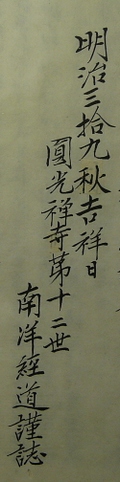 明治三拾九秋吉祥日
圓光禅寺第十二世
南洋經道謹誌